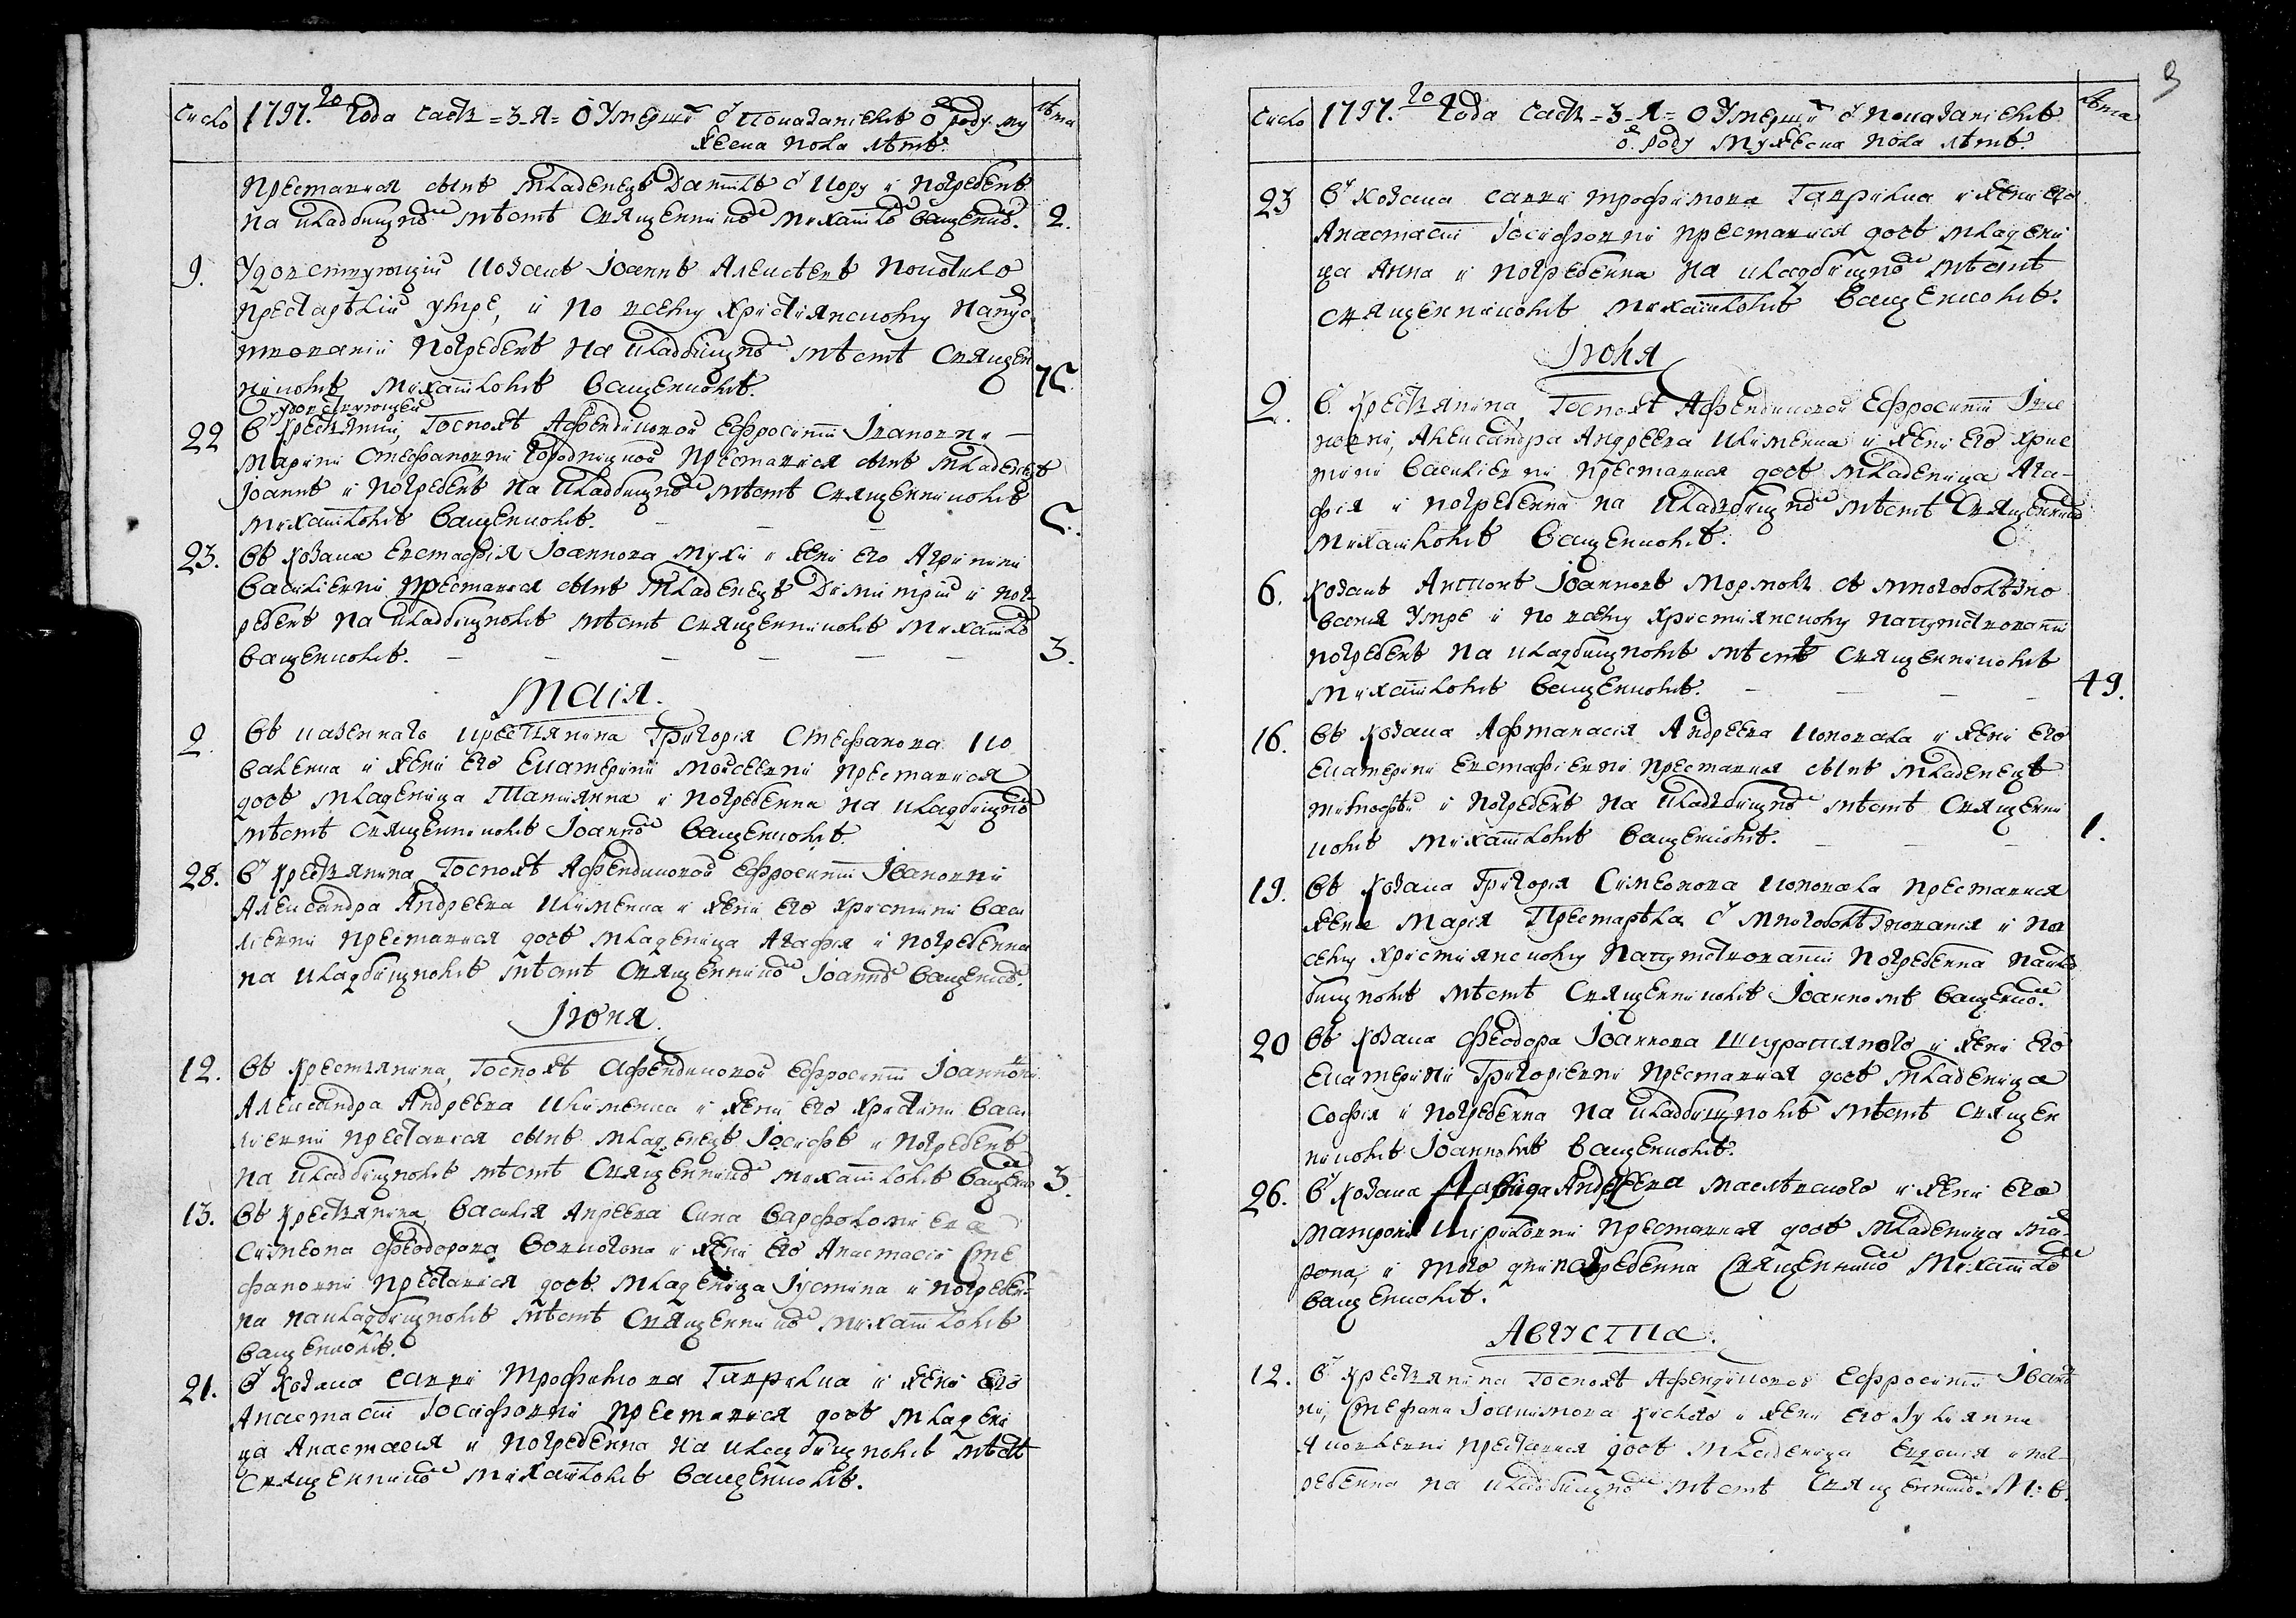 Число 1797.го Года Часть =3-Я= О Умерши с показаниемъ о роду му лета
жеска пола летъ.
преставися сынъ младенецъ Даниилъ с кору и погребенъ
на кладбищно месте священнико Михаило Ващенко. 2.
9. Удовствующий козакъ Иоаннъ Алексеевъ
престарелий умре, и по всему християнскому напут
ствованию погребенъ на кладбищно месте священ
никомъ Михаиломъ Ващенкомъ. 75
удовствующей
22 В крестянки, Госпожи Афендиковой Ефросинии Ивановни
Марини Стефановни Городницкой преставися сынъ младенецъ
Иоаннъ и погребенъ на кладбищно месте священникомъ
Михаиломъ Ващенкомъ. 5.
23. Въ козака Евстафия Иоаннова Мухи и жени его Агрипини
Василиевни преставися сынъ младенецъ Димитрий и пог
ребенъ на кладбищномъ месте священникомъ Михаило
Ващенкомъ. 3.
Маия.
2 Въ казеннаго крестянина Григория Стефанова Ко
валенка и жени его Екатерини Моисеевни преставися
дочь младеница Татиянна и погребенна на кладбищно
месте священникомъ Иоанно Ващенкомъ.
28. В крестянина Госпожи Афендиковой Ефросинии Ивановни
Александра Андреева Клименка и жени его Христини Васи
лиевни преставися дочь младеница Агафия и погребенна
на кладбищномъ месте священнико Иоанно Ващенко.
Июня.
12. Въ крестянина, Госпожи Афендиковой Ефросинии Иоанновни
Александра Андреева Клименка и жени его Христини Васи
лиевни преставися сынъ младенецъ Иосифъ и погребенъ
на кладбищномъ месте священнико Михаиломъ Ващенко 3.
13. Въ крестянина Василия Андреева сина Варфоломиева
Симеона Феодорова и жени его Анастасии Сте
фановни преставися дочь младеница Иустина и погребен
на на кладбищномъ месте священнико Михаиломъ
Ващенкомъ.
21. В козака Савви Трофимова Гаврилка и жени его
Анастасии Иосифовни преставися дочь младени
ца Анастасия и погребенна на кладбищномъ месте
священнико Михаиломъ Ващенкомъ.
3
Число 1797.го Года Часть =3-Я= О Умерши с показаниемъ лета
о роду мужеска пола летъ.
23 В козака Савви Трофимова Гаврилка и жени его
Анастасии Иосифовни преставися дочь младени
ца Анна и погребенна на кладбищно месте
священникомъ Михаиломъ Ващенкомъ.
Июля
2. В крестянина Госпожи Афендиковой Ефросинии Ива
новни, Александра Андреева Клименка и жени его Хрис
тини Василиевни преставися дочь младеница Ага-
фия и погребенна на кладбищно месте священнико
Михаиломъ Ващенкомъ.
6. Козакъ Антонъ Иоанновъ съ многоболезно
вания умре и по всему християнскому напутствовании
погребенъ на кладбищномъ месте священникомъ
Михаиломъ Ващенкомъ. 49.
16. Въ козака Афтанасия Андреева Коновала и жени его
Екатерини Евстафиевни преставися сынъ младенецъ
Тимофей и погребенъ на кладбищно месте священни
комъ Михаиломъ Ващенкомъ. 1.
19. Въ козака Григория Симеонова Коновала преставися
жена Мария престарела с многоболезнования и по в
сему християнскому напутствовании погребенна на клад
бищномъ месте священникомъ Иоанномъ Ващенко.
20 Въ козака Феодора Иоаннова и жени его
Екатерини Григориевни преставися дочь младеница
София и погребенна на кладбищномъ месте священ
никомъ Иоанномъ Ващенкомъ.
26. В козака Давида Андреева и жени его
Матрони Кириловни преставися дочь младеница Мат
рона, и того дни погребенна священнико Михаило
Ващенкомъ.
Августа.
12. В крестянина Госпожи Афендиковой Ефросинии Ивано
ни, Стефана Иоакимова и жени его Иулиянни
Яковлевни преставися дочь младеница Евдокия и пог
ребенна на кладбищно месте священнико М: В.